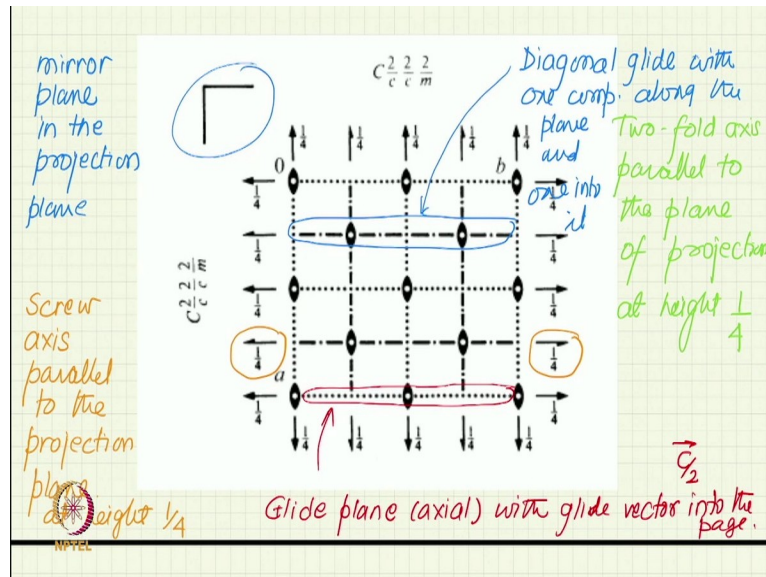 mirror
plane
in the
projection
plane
C 2/c 2/c 2/m
Diagonal glide with
one comp. along the
plane
and
one into
it
Two-fold axis
parallel to
the plane
of projection
at height 1/4
1/4 1/4 1/4 1/4 1/4
0 b
1/4 1/4
1/4 1/4
1/4 1/4
C 2/c 2/c 2/m
1/4 1/4
a
1/4 1/4
1/4 1/4 1/4 1/4 1/4
Screw
axis
parallel
to the
projection
plane
at height 1/4
C/2
Glide plane (axial) with glide vector into the
page.
NPTEL